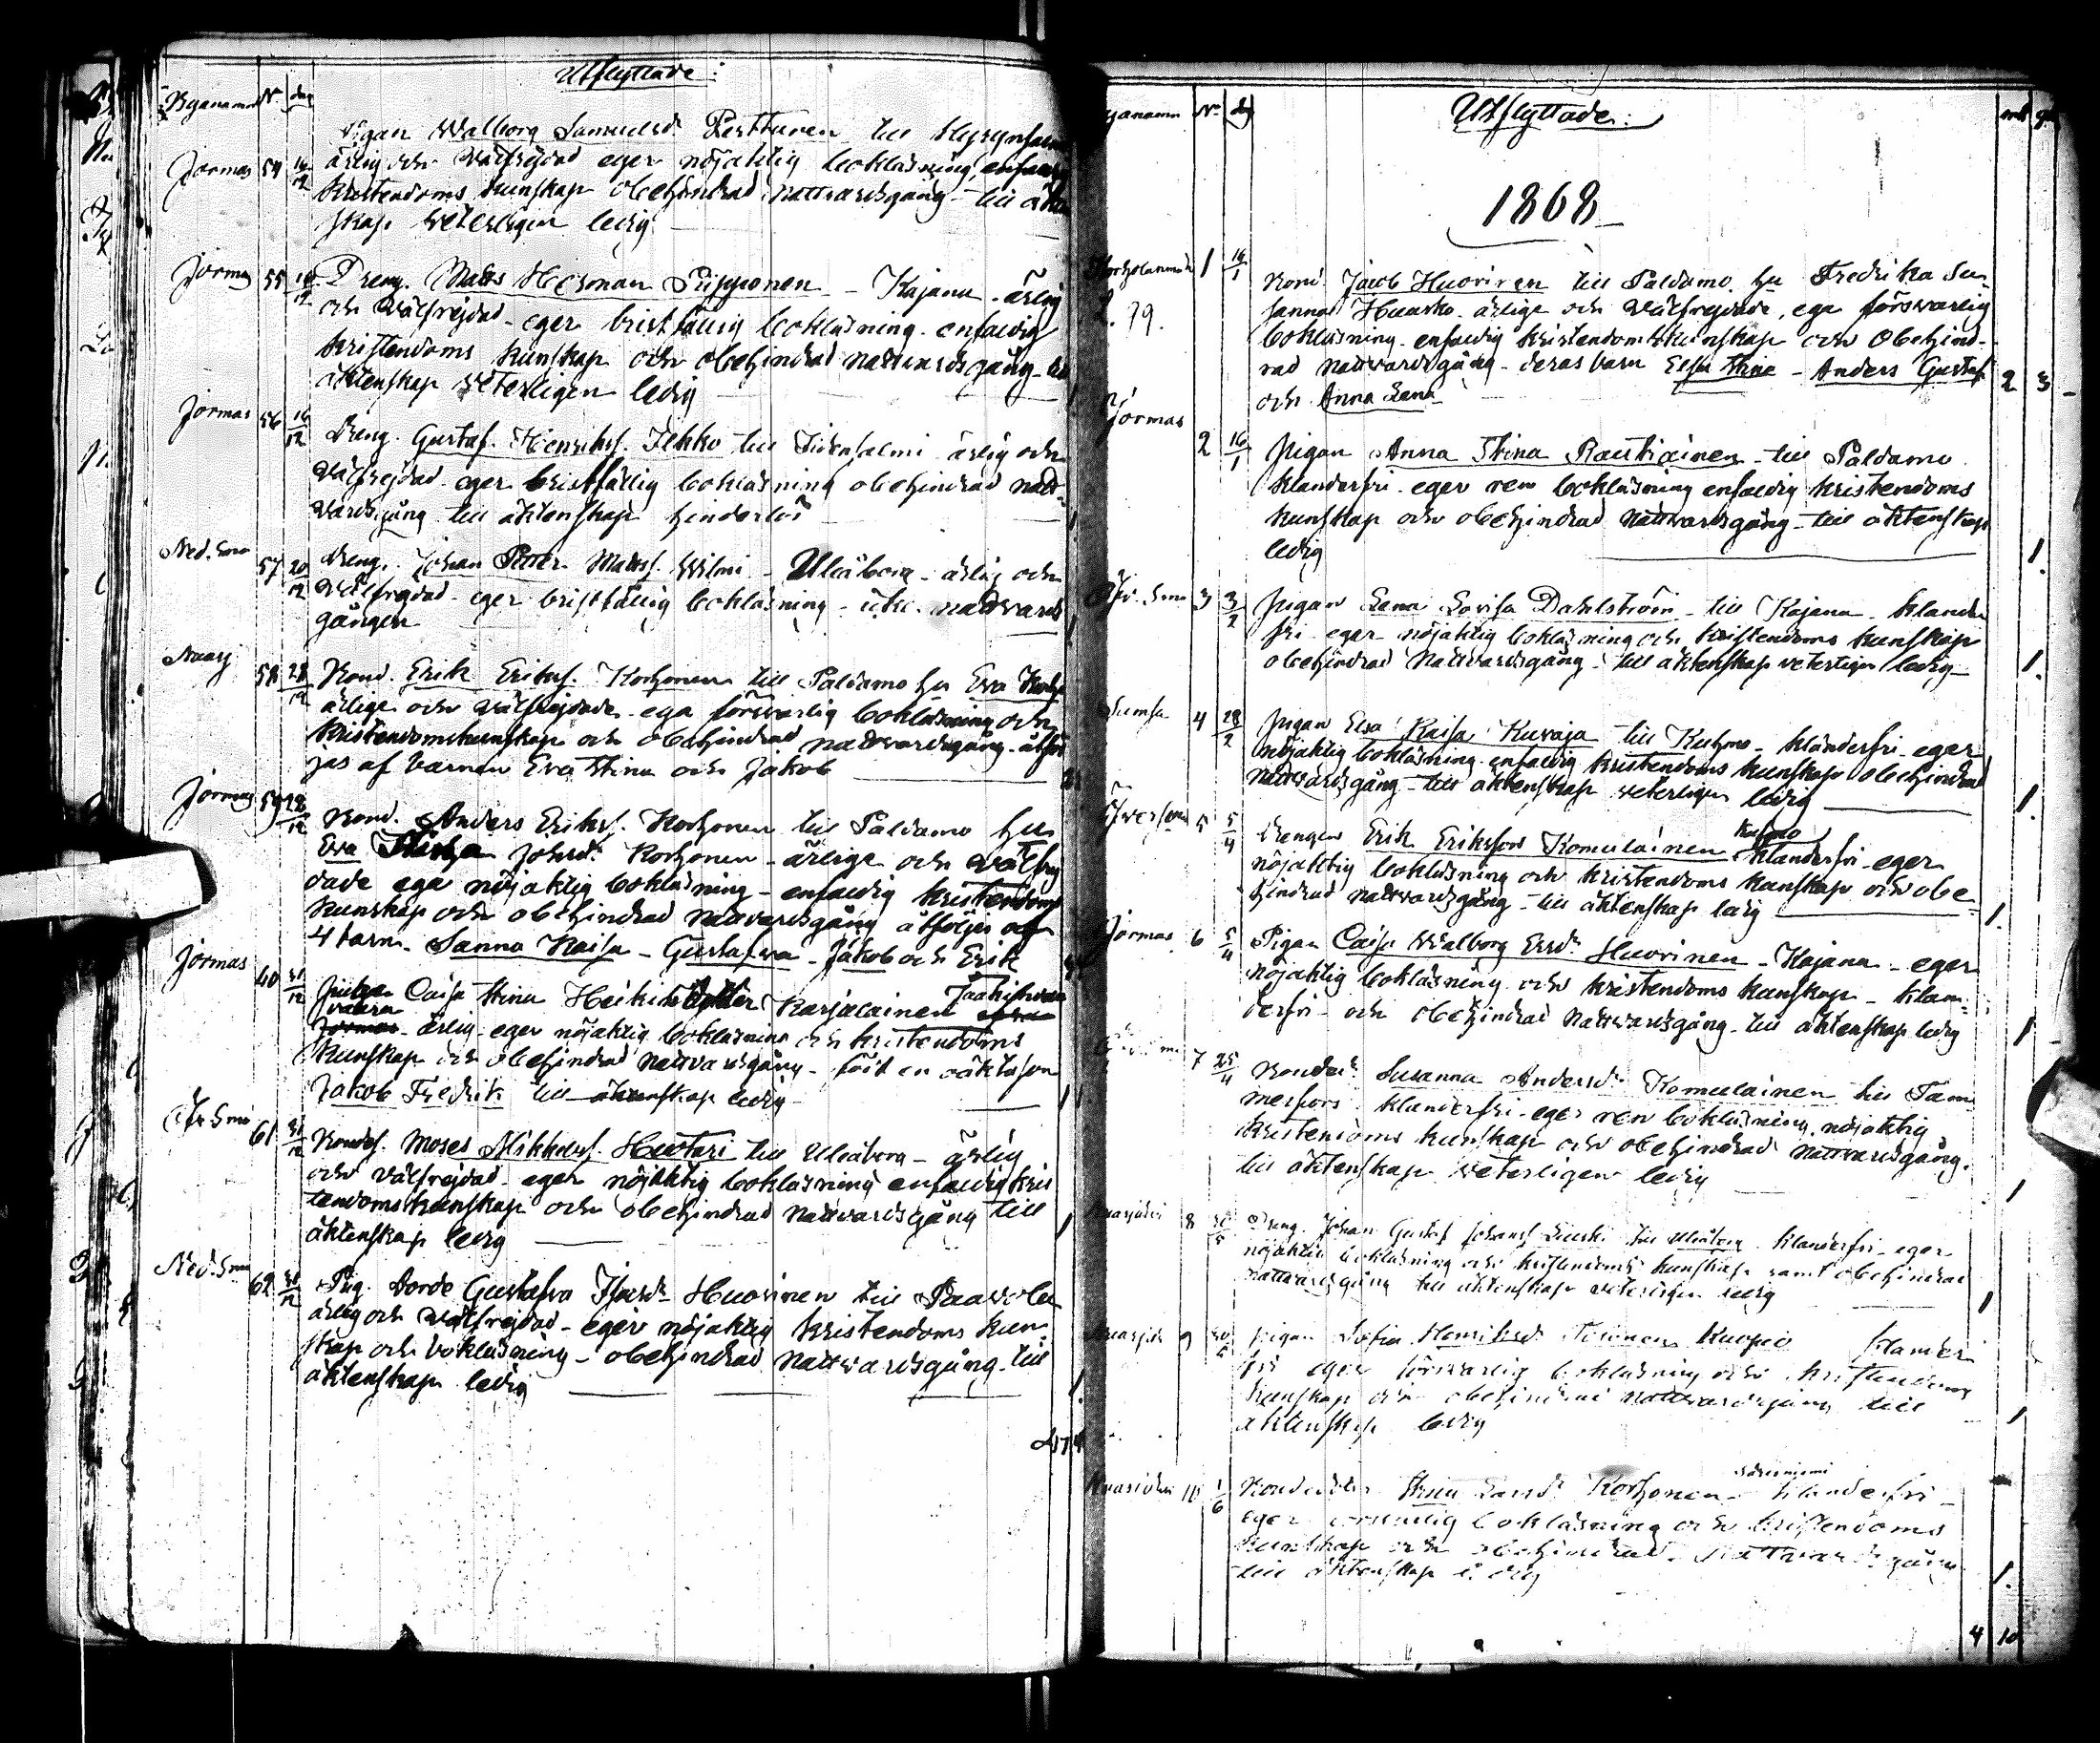 Utflyttade:
Byanamn N:o dag
Pigan Walborg Samuelsd. Perttunen till Hyrynsalmi
Jormas 54 16/12 ärlig och välfrejdad eger nöjaktig bokläsning, enfaldig
kristendoms kunskap obehindrad nattvardsgång - till äkten
skap veterligen ledig
Jormas 55 16/12 Dreng. Matts Herman Piipponen - Kajana - ärlig
och välfrejdad - eger bristfällig bokläsning - enfaldig
kristendoms kunskap och obehindrad nattvardsgång - till
äktenskap veterligen ledig
Jormas 56 16/12 Dreng. Gustaf Henriks. Tekko till Idensalmi ärlig och
välfrejdad - eger bristfällig bokläsning obehindrad natt-
vardsgång till äktenskap hinderlös
Ned. Smo 57 20/12 Dreng. Johan Petter Matts. Wilmi - Uleåborg - ärlig och
välfrejdad - eger bristfällig bokläsning - nattvards
gången
Naasj 58 28/12 Bond. Erik Eriks. Korhonen till Paldamo hu Eva
ärlige och välfrejdade ega försvarlig bokläsning och
kristendomskunskap och obehindrad nattvardsgång - åtföl
jas af barnen Eva Stina och Jakob
Jormas 59 28/12 Bond. Anders Eriks. Korhonen till Paldamo hu
Eva Johsd. Korhonen - ärlige och välfrej
dade ega nöjaktig bokläsning - enfaldig kristendoms
kunskap och obehindrad nattvardsgång åtföljes af
4 barn - Sanna Kaisa - Gustafva - Jakob och Erik
Jormas 60 31/12 Caisa Stina Heikinsdotter Karjalainen
vaara
Jormas - ärlig - eger nöjaktig bokläsning och kristendoms
kunskap och obehindrad nattvardsgång - född en oäkta son
Jakob Fredrik till äktenskap ledig
Öfr Smo 61 31/12 Bondes. Moses Mikkels. Huotari till Uleåborg - ärlig
och välfrejdad - eger nöjaktig bokläsning enfaldig kris
tendoms kunskap och obehindrad nattvardsgång till
äktenskap ledig
Ned. Smo 62 31/12 Pig. Gustafva Huovinen till Paavola
ärlig och välfrejdad - eger nöjaktig kristendoms kun
skap och bokläsning - obehindrad nattvardsgång - till
äktenskap ledig
Utflyttade:
Byanamn N:o dag
1868
1 16/1 Bond. Jacob Huovinen till Paldamo hu Fredrika Su-
sanna ärlige och välfrejdade, ega försvarlig
bokläsning enfaldig kristendomskunskap och obehind-
rad nattvardsgång - deras barn Elsa Stina - Anders Gustaf
och Anna Lena 2 3
Jormas 2 16/1 Pigan Anna Stina Rautiainen till Paldamo
klanderfri - eger ren bokläsning enfaldig kristendoms
kunskap och obehindrad nattvardsgång - till äktenskap
ledig 1
Öfv. Smo 3 3/2 Pigan Lena Lovisa Dahlström - till Kajana - klander
fri - eger nöjaktig bokläsning och kristendoms kunskap
obehindrad nattvardsgång - till äktenskap veterligen ledig 1
Sumsa 4 28/2 Pigan Elsa Kaisa Kuvaja till Kuhmo - klanderfri - eger
nöjaktig bokläsning - enfaldig kristendoms kunskap obehindrad
nattvardsgång - till äktenskap veterligen ledig 1
5 5/4 Drengen Erik Eriksson Komulainen Kuhmo klanderfri - eger
nöjaktig bokläsning och kristendoms kunskap och obe-
hindrad nattvardsgång - till äktenskap ledig 1
Jormas 6 5/4 Pigan Caisa Walborg Ersd. Huovinen - Kajana - eger
nöjaktig bokläsning och kristendoms kunskap - klan-
derfri - och obehindrad nattvardsgång till äktenskap ledig 1
7 25/4 Susanna Andersd. Komulainen till Tam
merfors - klanderfri - eger ren bokläsning, nöjaktig
kristendoms kunskap och obehindrad nattvardsgång.
till äktenskap veterligen ledig 1
8 Dreng. Johan Gustaf Johans. till Uleåborg - klanderfri - eger
nöjaktig bokläsning och kristendoms kunskap samt obehindrad
nattvardsgång till äktenskap veterligen ledig 1
9 Pigan Sofia Henriksd. Kuopio klander
fri eger försvarlig bokläsning och kristendoms
kunskap och obehindrad nattvardsgång till
äktenskap ledig 1
10 1/6 Stina Korhonen - Säresniemi klanderfri -
eger försvarlig bokläsning och kristendoms
kunskap och obehindrad nattvardsgång
till äktenskap ledig 1.
4 10